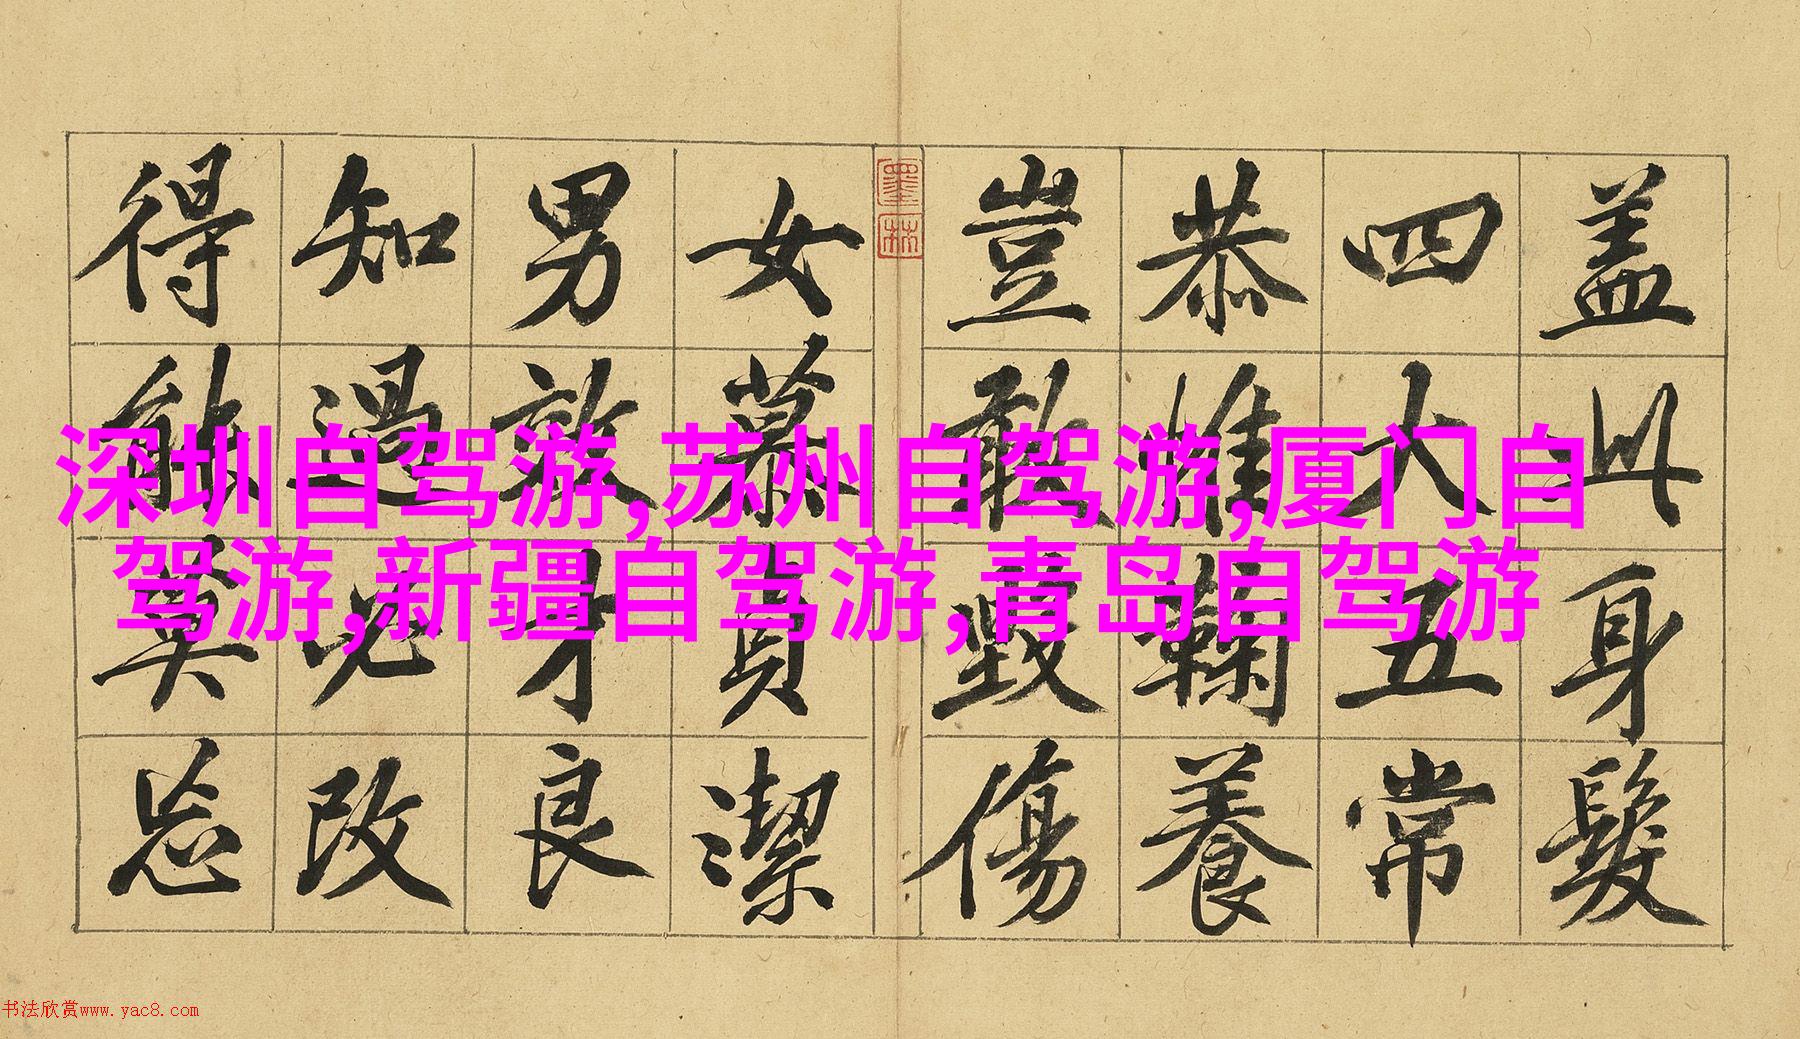 盖此身髮
四大五常
恭惟鞠養
豈敢毀傷
墨林
女慕貞潔
男效才良
知過必改
得能莫忘
深圳自驾游,苏州自驾游,厦门自
驾游,新疆自驾游,青岛自驾游
书法欣赏www.yac8.com